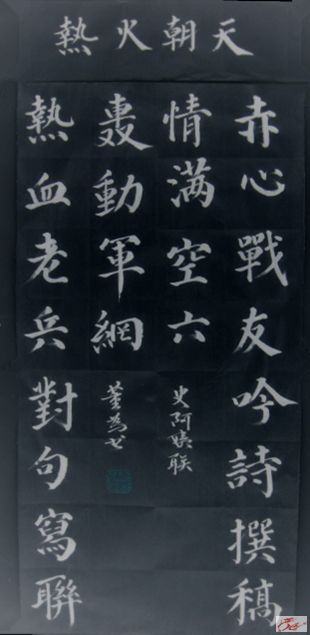 天朝火熱
赤心戰友吟詩撰稿
情满空六
史阿姨联
熱血老兵對句寫聯
轰動軍網
董為书